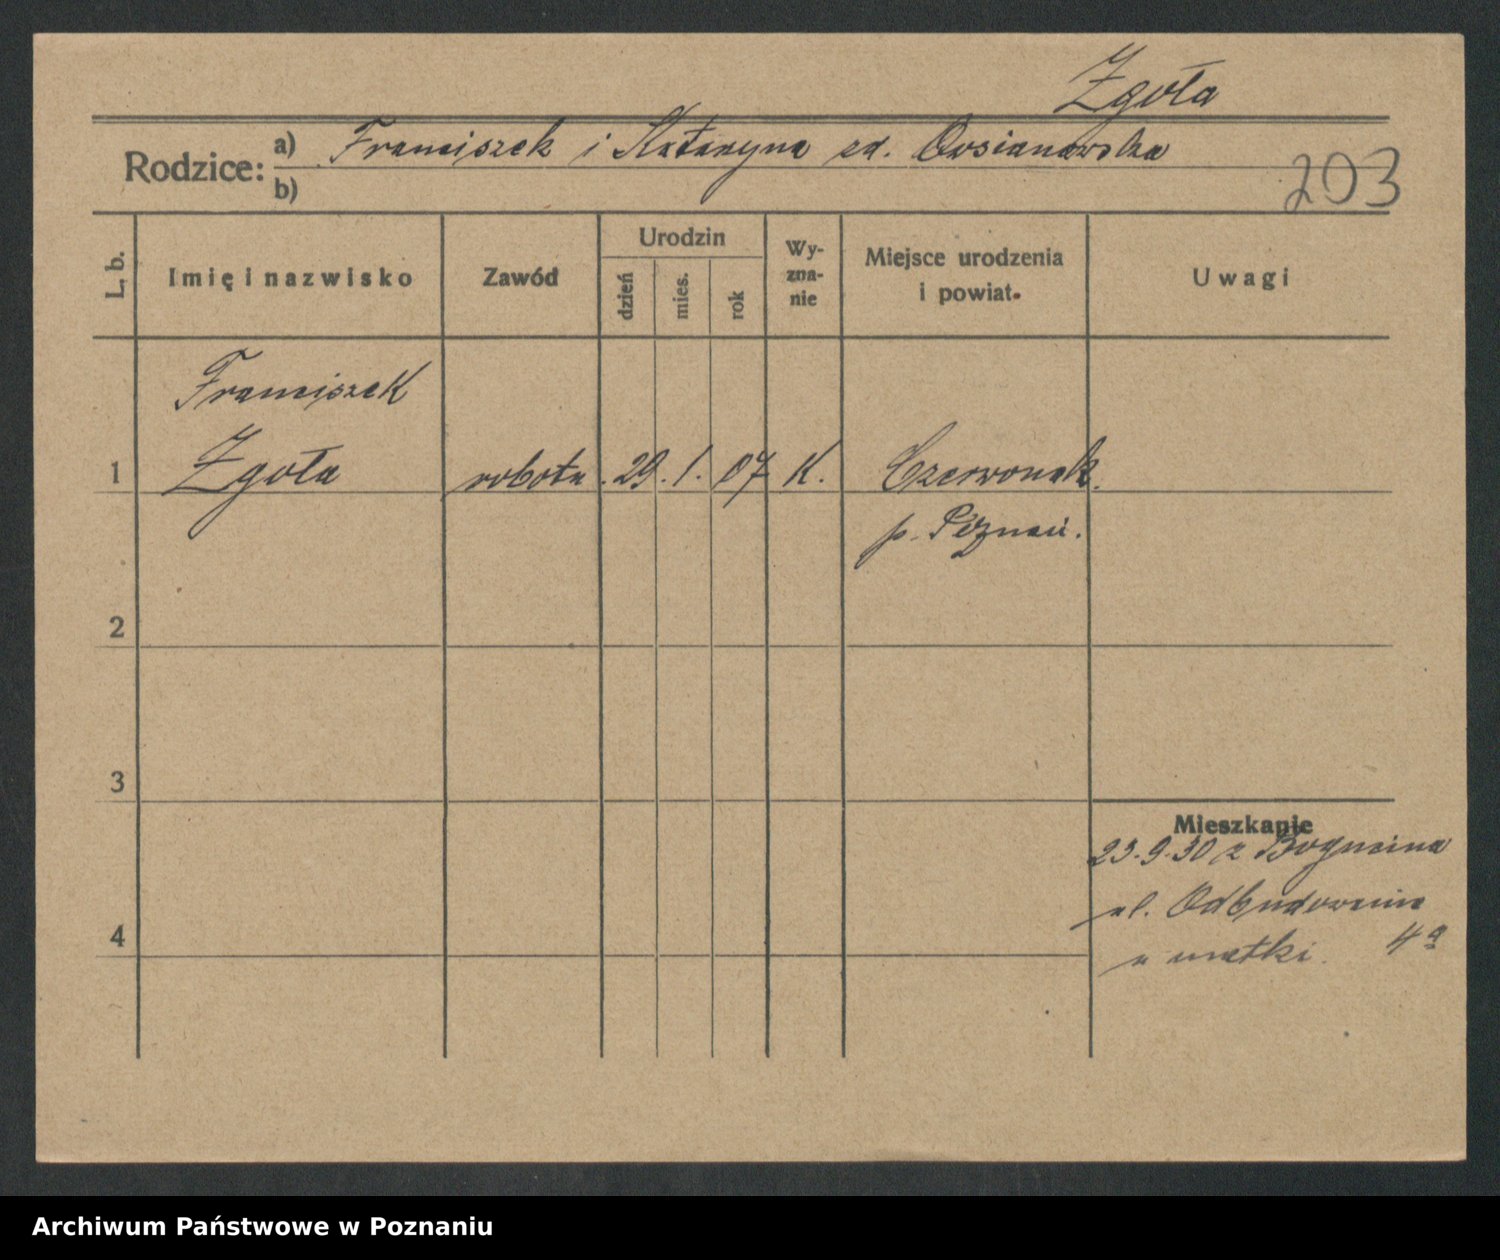 Zgoła
Rodzice: a) Franciszek i Katarzyna zd. Owsianowska
b)
203
L. b.
Imię i nazwisko
Zawód
Urodzin
dzień
mies.
rok
Wy-
zna-
nie
Miejsce urodzenia
i powiat.
Uwagi
Franciszek
1 Zgoła robotn. 29. 1. 07 K. Czerwonak.
p. Poznań.
2
3
Mieszkanie
23.9.30 z
ul. Odbudowanie
4 u matki. 4a
Archiwum Państwowe w Poznaniu